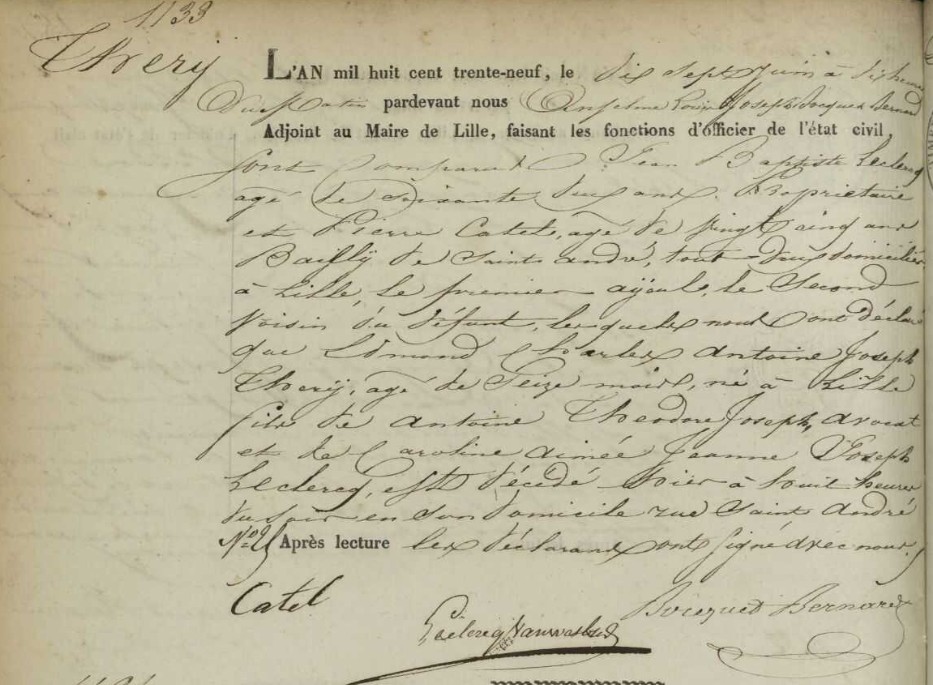 1133
Thery
L'AN mil huit cent trente-neuf, le dix sept Juin à dix heures
Du matin pardevant nous Anselme Louis Joseph Bocquet Bernard
Adjoint au Maire de Lille, faisant les fonctions d'officier de l'état civil,
sont comparus Jean Baptiste Leclercq
agé de soixante deux ans, Propriétaire
et Pierre Catel, agé de vingt cinq ans
Bailly de Saint andré, tous deux domiciliés
à Lille, le premier ayeul, le Second
Voisin du défunt, lesquels nous ont déclaré
que Edmond Charles Antoine Joseph
Thery, agé de Seize mois, né à Lille
fils de Antoine Théodore Joseph, avocat
et de Caroline aimée Jeanne Joseph
Leclercq, est décédé hier à huit heures
du soir en son domicile rue Saint André
N° Après lecture les déclarans ont signé avec nous.
Catel
Leclercq Bocquet Bernard